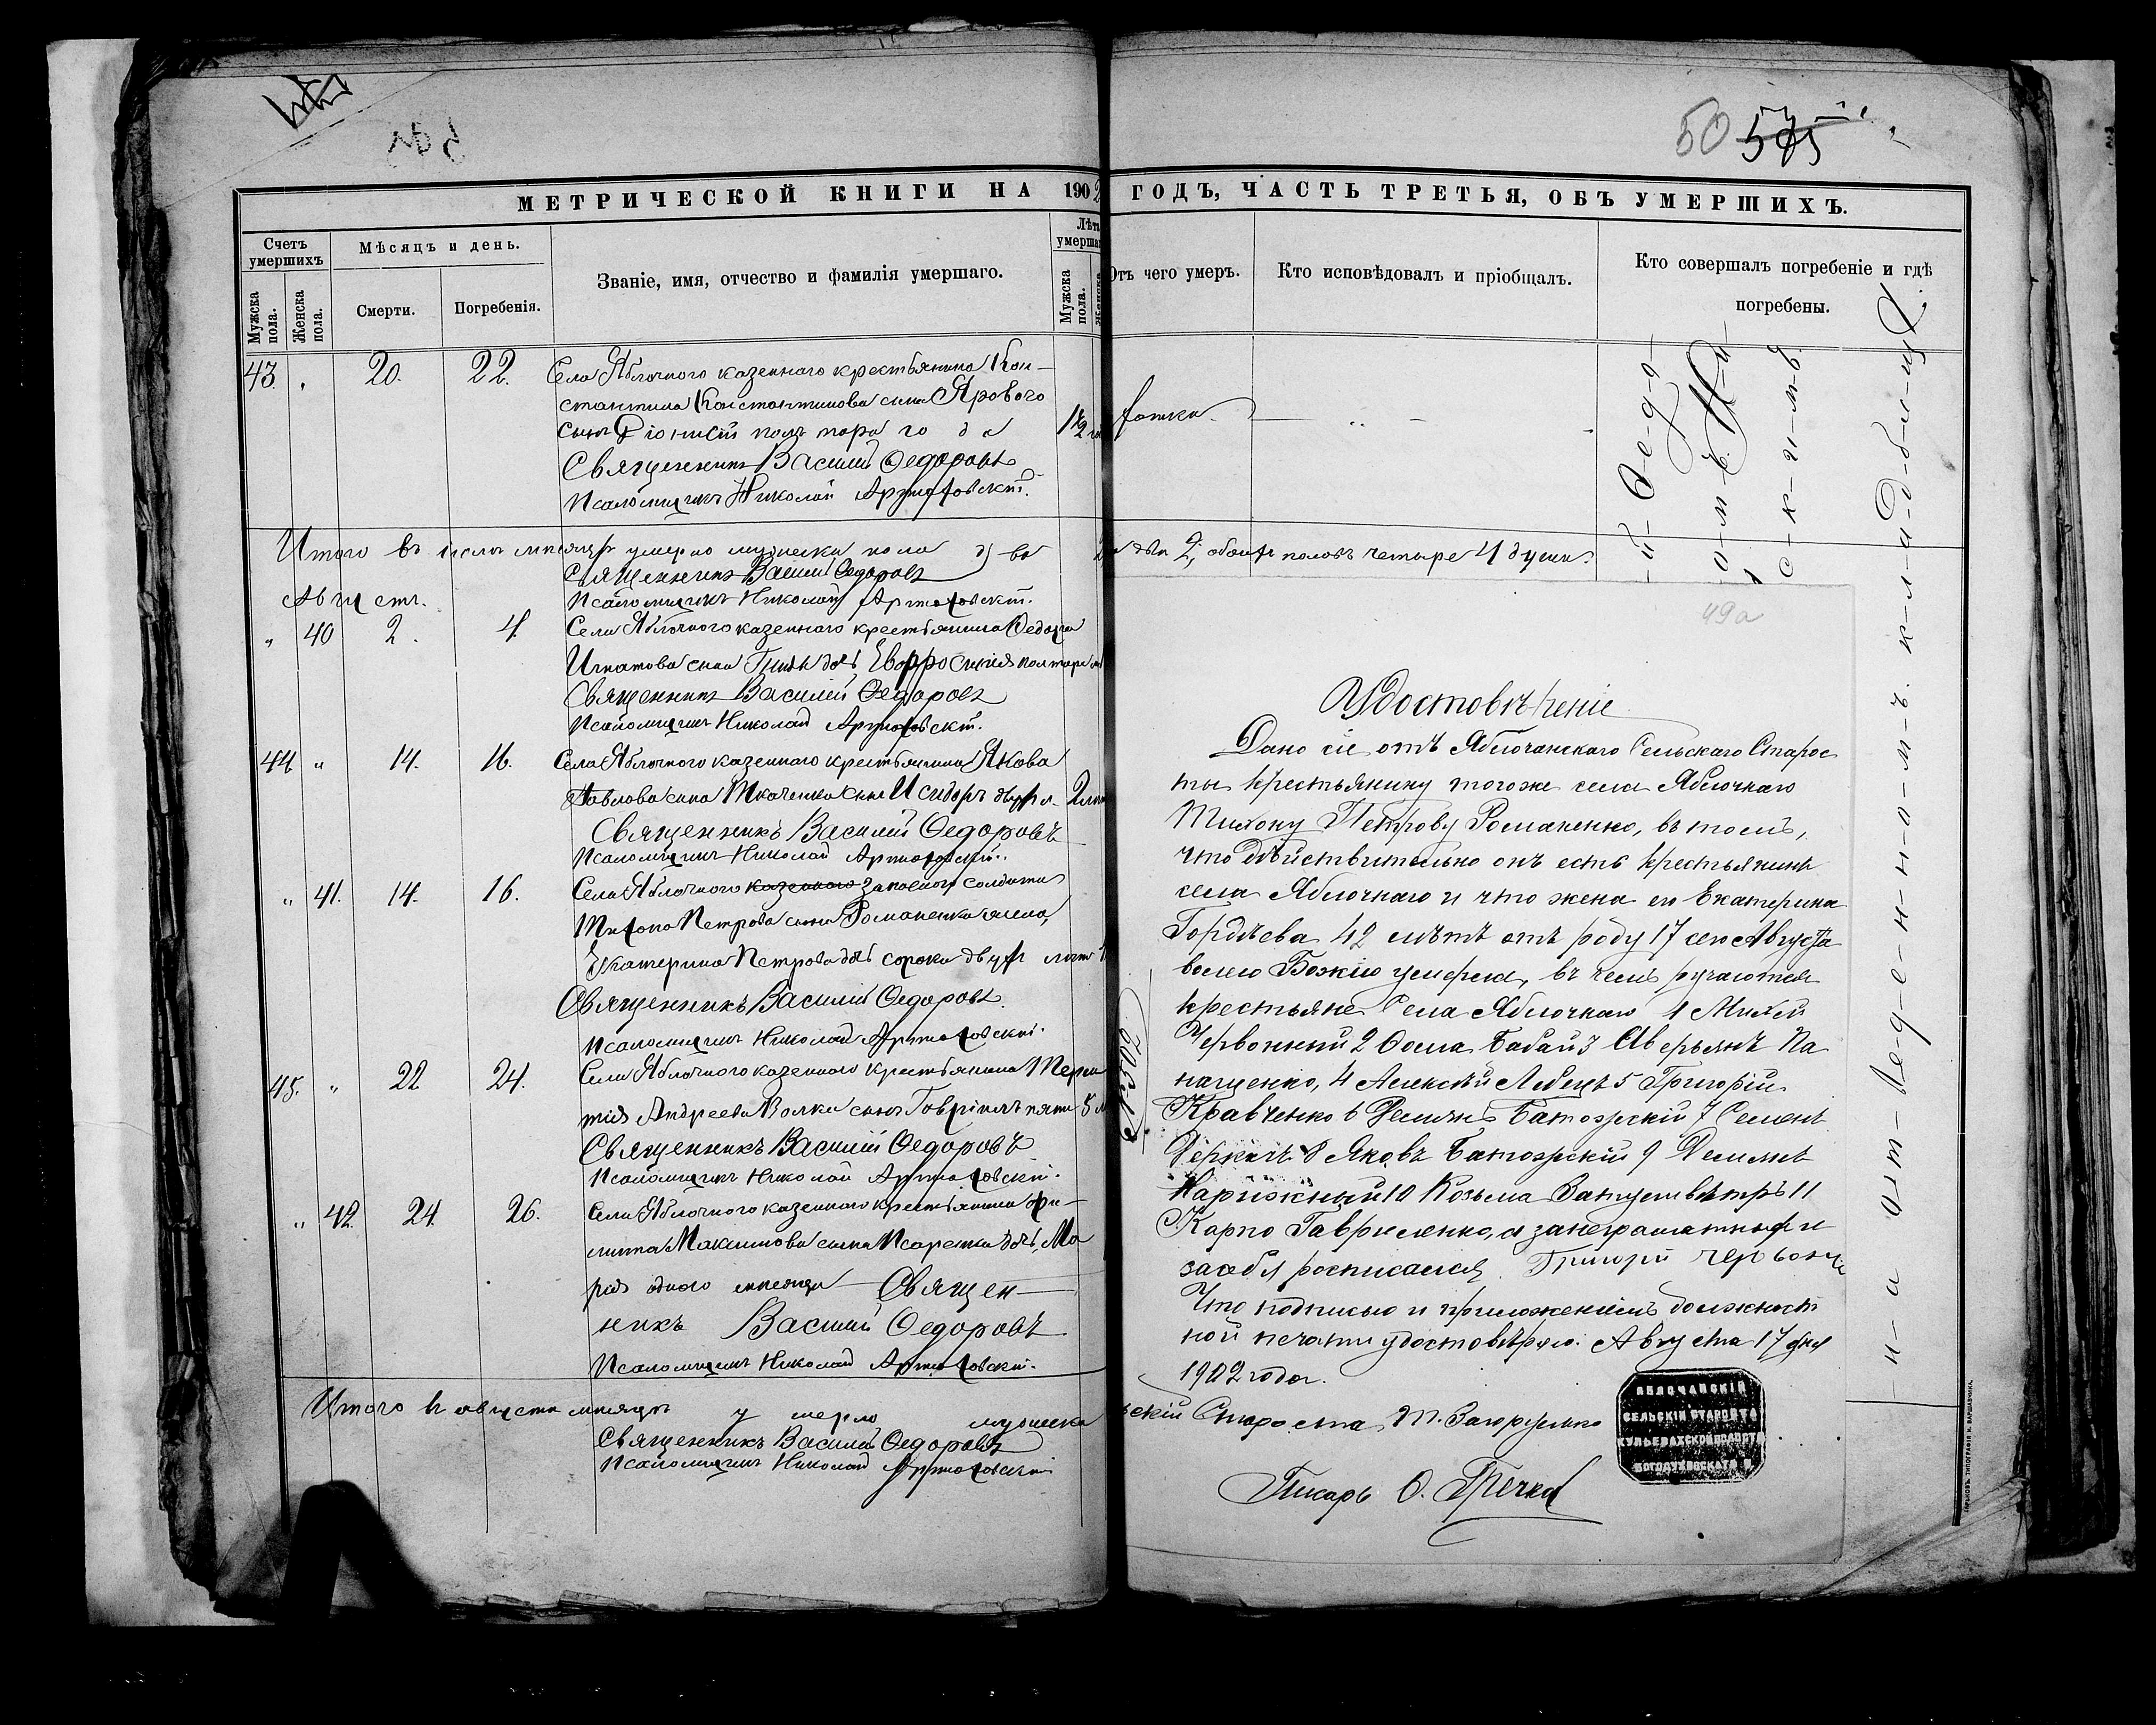 50 575
МЕТРИЧЕСКОЙ КНИГИ НА 1902 ГОДЪ, ЧАСТЬ ТРЕТЬЯ, ОБЪ УМЕРШИХЪ.
Счетъ умершихъ
Мужска пола.
Женска пола.
Мѣсяцъ и день.
Смерти.
Погребенія.
Званіе, имя, отчество и фамилія умершаго.
Лѣта умерша
Мужска пола.
Женска
Отъ чего умеръ.
Кто исповѣдовалъ и пріобщалъ.
Кто совершалъ погребеніе и гдѣ
погребены.
43. „ 20. 22. Села Яблочного казенного крестьянина Кон-
стантина Константинова сына Ярового
сынъ Діонисій полтора года 1½
Священникъ Василій Федоровъ
Псаломщикъ Николай Артюховскій.
Итого въ іюлѣ мѣсяцѣ умерло мужеска пола 2, обоихъ половъ четыре 4 души.
Священникъ Василій Федоровъ
Августъ. Псаломщикъ Николай Артюховскій.
„ 40 2. 4. Села Яблочного казенного крестьянина Федора
Игнатова сына дочь Евфросинія
Священникъ Василій Федоровъ
Псаломщикъ Николай Артюховскій.
44 „ 14. 16. Села Яблочного казенного крестьянина Якова
Павлова сына Ткаченка сынъ Исидоръ двухъ л. 2
Священникъ Василій Федоровъ
Псаломщикъ Николай Артюховскій.
„ 41. 14. 16. Села Яблочного казенного запасного солдата
Тихона Петрова сына Романенка жена
Екатерина Петрова сорока двухъ лѣтъ
Священникъ Василій Федоровъ.
Псаломщикъ Николай Артюховскій.
45. „ 22 24. Села Яблочного казенного крестьянина
Андреева Волка сынъ Гавріилъ пяти 5
Священникъ Василій Федоровъ
Псаломщикъ Николай Артюховскій.
„ 42. 24. 26. Села Яблочного казенного крестьянина Фи-
липпа Максимова сына дочь Ма
рія одного мѣсяца Священ-
никъ Василій Федоровъ
Псаломщикъ Николай Артюховскій.
Итого въ августѣ мѣсяцѣ умерло мужеска
Священникъ Василій Федоровъ
Псаломщикъ Николай Артюховскій
49а
Удостовѣреніе
Дано сіе отъ Яблочанскаго Сельскаго Старос
ты крестьянину тогоже села Яблочнаго
Тихону Петрову Романенко, въ томъ,
что дѣйствительно онъ есть крестьянинъ
села Яблочнаго и что жена его Екатерина
Гордѣева 42 лѣтъ отъ роду 17 сего Августа
волею Божіею умерла, въ чемъ ручаются
крестьяне Села Яблочнаго 1 Михей
Червонный 2 Фома Бабай 3 Аверьянъ Па
нащенко, 4 Алексѣй Лебедь 5 Григорій
Кравченко 6 Демьянъ Батожскій 7 Семенъ
Деркачъ 8 Яковъ Батожскій 9 Демьянъ
Нарижный 10 Козьма Запустивѣтръ 11
Карпо Гавриленко, а за неграматныхъ и
за себя росписался Григорій Червоны
Что подписью и приложеніемъ должност
ной печати удостовѣряю. Августа 17 дня
1902 года.
скій Староста Т.
ЯБЛОЧАНСКІЙ
СЕЛЬСКІЙ СТАРОСТА
БОГОДУХОВСКАГО У.
Писарь О. Гречка